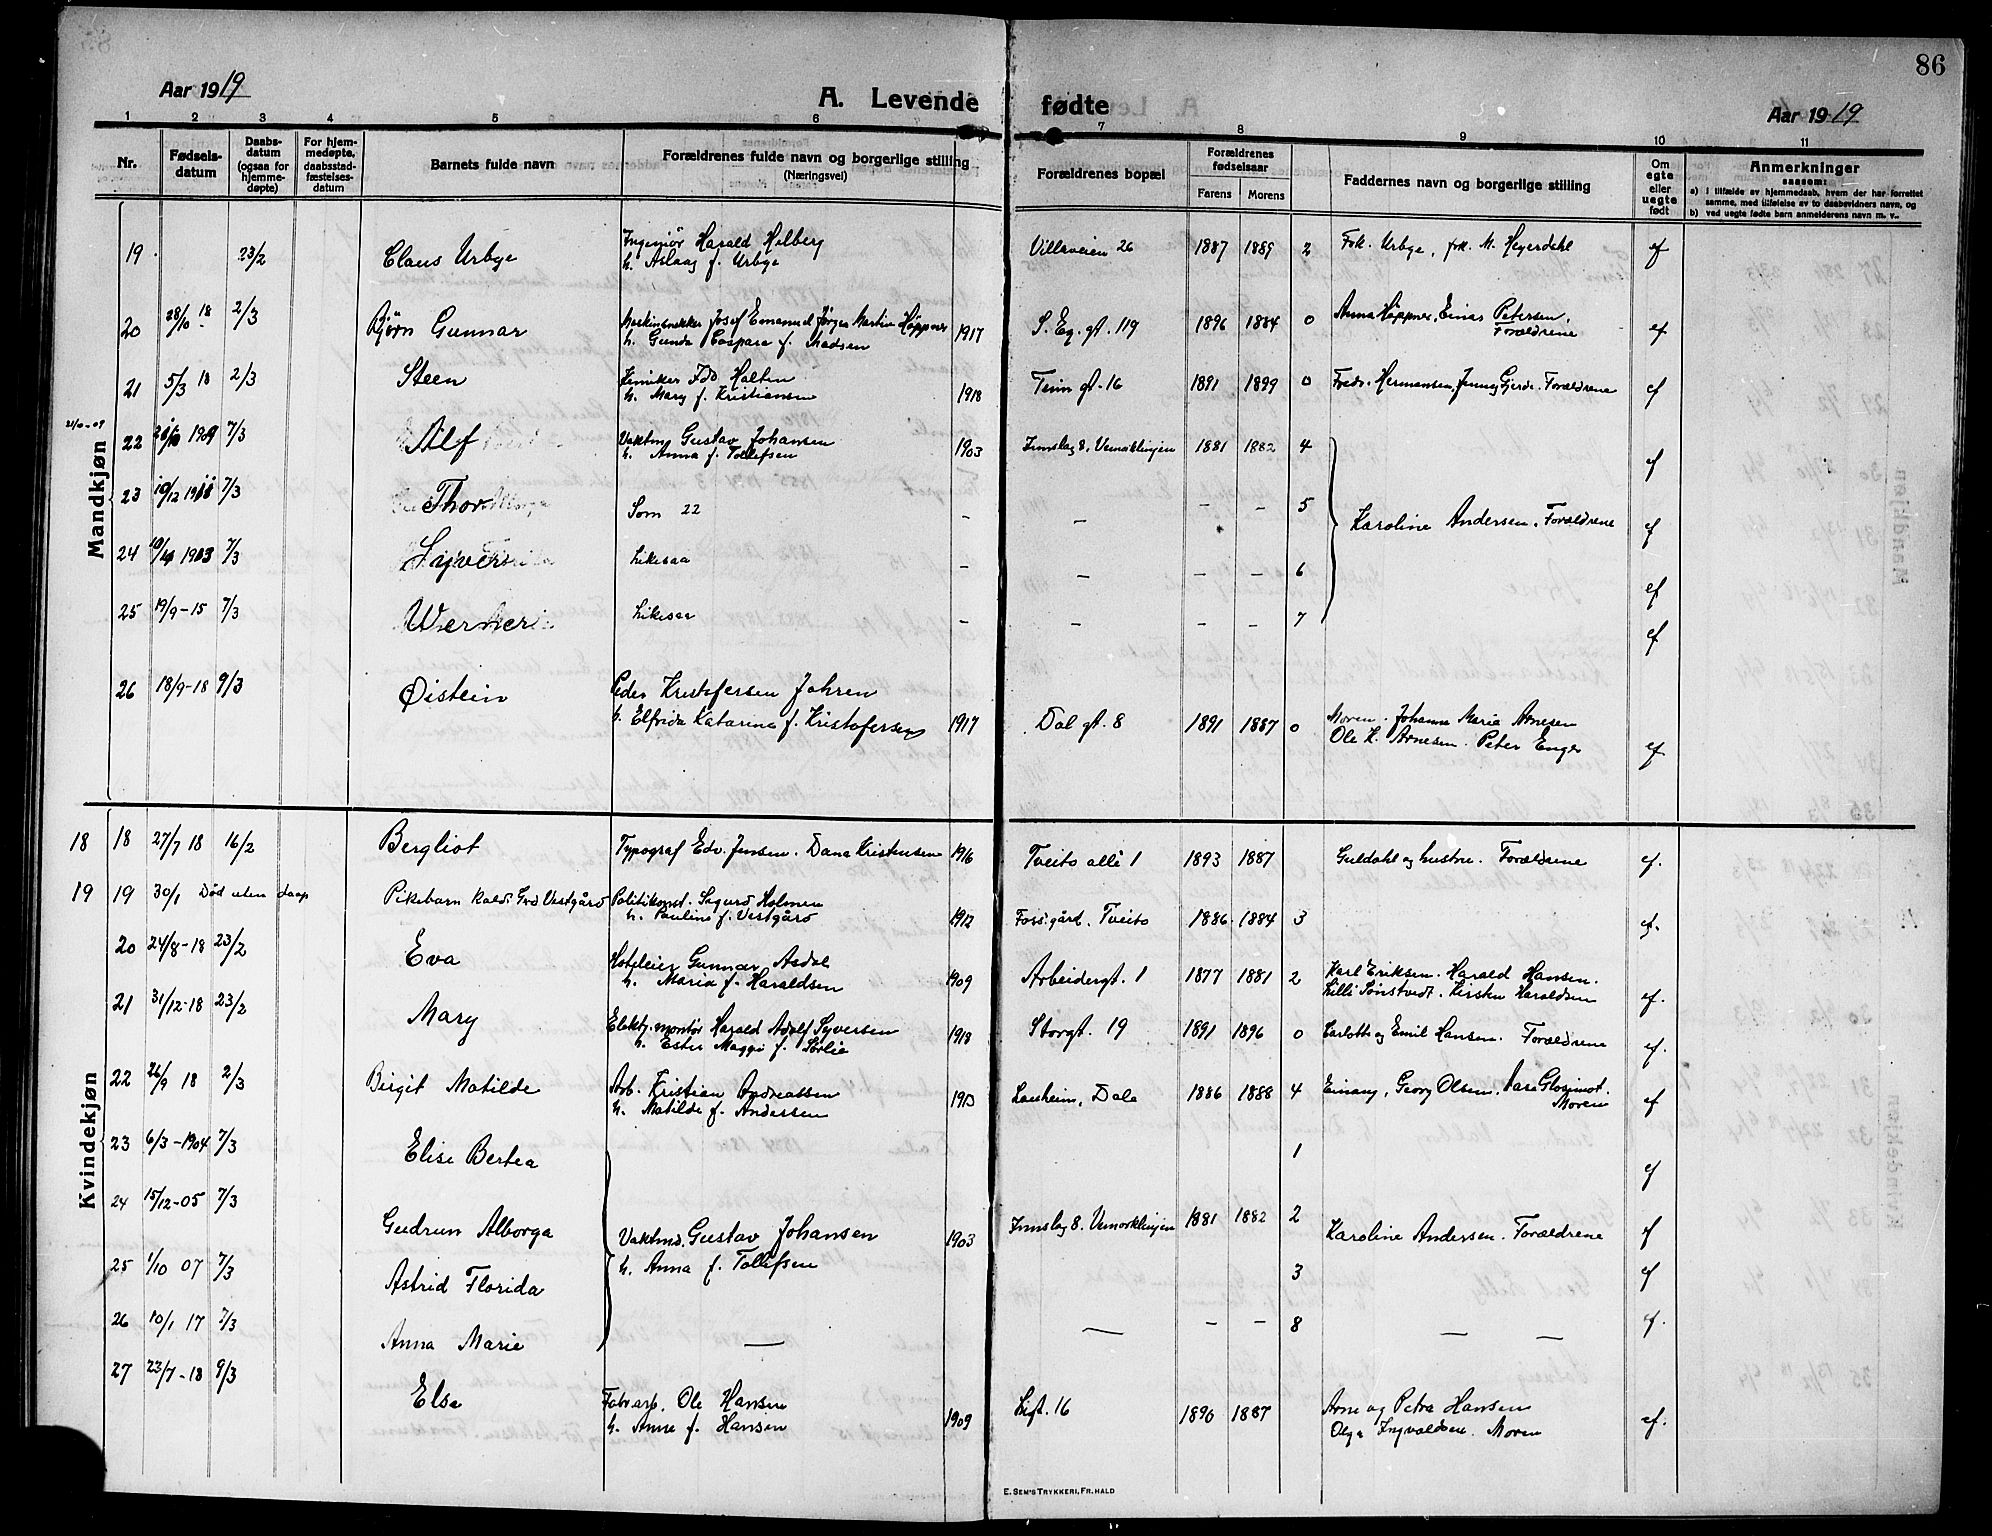 86
Aar 1919
A. Levende fødte
Aar 1919
1 2 3 4 5 6 7 8 9 10 11
Nr.
Fødsels-
datum
Daabs-
datum
(ogsaa for
hjemme-
døpte)
For hjem-
medøpte,
daabsstad-
fæstelses-
datum
Barnets fulde navn
Forældrenes fulde navn og borgerlige stilling
(Næringsvei)
Forældrenes bopæl
Forældrenes
fødselsaar
Farens Morens
Faddernes navn og borgerlige stilling
Om
egte
eller
uegte
født
Anmerkninger
saasom:
a) i tilfælde av hjemmedaab, hvem der har forrettet
samme, med tilføielse av to daabsvidners navn, og
b) ved uegte fødte barn anmelderens navn m. v..
Mandkjøn
19 23/2 Claus Urbye Ingeniør Harald Holberg Villaveien 26 1887 1889 2 Frk. Urbye, frk. M. Heyerdahl ef
h. Aslaug f. Urbye
20 28/10 18 2/3 Bjørn Gunnar Josef Emanuel Jørgen Martin Høppner 1917 S. Eg. gt. 119 1896 1884 0 Anna Høppner, Einar Petersen, ef
h. Gunda Caspara f. Madsen Forældrene
21 5/3 18 2/3 Steen Kemiker Holten 1918 Tinn gt. 16 1891 1899 0 Fredr. Hermansen, Jenny Gjerde. Forældrene ef
h. Mary f. Kristiansen
21/10-09
22 1909 7/3 Alf Vaktm Gustav Johansen 1903 Innslag 8, Vemorklinjen 1881 1882 4 ef
h. Anna f. Tollefsen
23 10/12 1911 7/3 Thor Som 22 - - - - 5 Karoline Andersen, Forældrene ef
24 1913 7/3 Syver Likesaa - - - - 6 ef
25 19/9-15 7/3 Werner Likesaa - - - - 7 ef
26 18/9-18 9/3 Øistein Peder Kristofersen Johren
h. Elfrida Katarina f. Kristofersen 1917 Dal gt. 8 1891 1887 0 Moren. Johanne Marie Arnesen
Ole K. Arnesen. Peter Enger ef
Kvindekjøn
18 18 27/7 18 16/2 Bergliot Typograf Edv. Jensen. Dana Kristensen 1916 Tveito alle 1 1893 1887 Guldahl og hustru. Forældrene ef.
19 19 30/1 Død uten daap Pikebarn kaldt Vestgård Politikonst. Sigurd Holmen
h. Pauline f. Vestgård 1912 Foss gård. Tveito 1886 1884 3 ef.
20 24/8-18 23/2 Eva Hoteleier Gunnar Asdal
h. Maria f. Haraldsen 1909 Arbeidergt. 1 1877 1881 2 Karl Eriksen. Harald Hansen.
Lilli Sønstvedt. Kirsten Haraldsen ef.
21 31/12-18 23/2 Mary Elektr. montør Harald Adolf Syversen
h. Ester Maggi f. Sørlie 1918 Storgt. 19 1891 1896 0 Carlotte og Emil Hansen. Forældrene ef.
22 26/9 18 2/3 Birgit Matilde Arb. Kristian Andreassen
h. Matilde f. Andersen 1913 Dale 1886 1888 4 Georg Olsen,
Moren ef
23 6/3-1904 7/3 Elise Bertea 1 ef
24 15/12-05 7/3 Gudrun Alborga Vaktmd. Gustav Johansen 1903 Innslag 8. Vemorklinjen 1881 1882 2 Karoline Andersen. Forældrene ef
25 1/10 07 7/3 Astrid Florida h. Anna f. Tollefsen 3 ef
26 10/1 17 7/3 Anna Marie — — - - 8 — — ef.
27 23/7-18 9/3 Else Fabr. arb. Ole Hansen
h. Anne f. Hansen 1909 16 1890 1887 Arne og Petra Hansen
Olga Ingvaldsen. Moren ef.
E. SEM'S TRYKKERI, FR.HALD